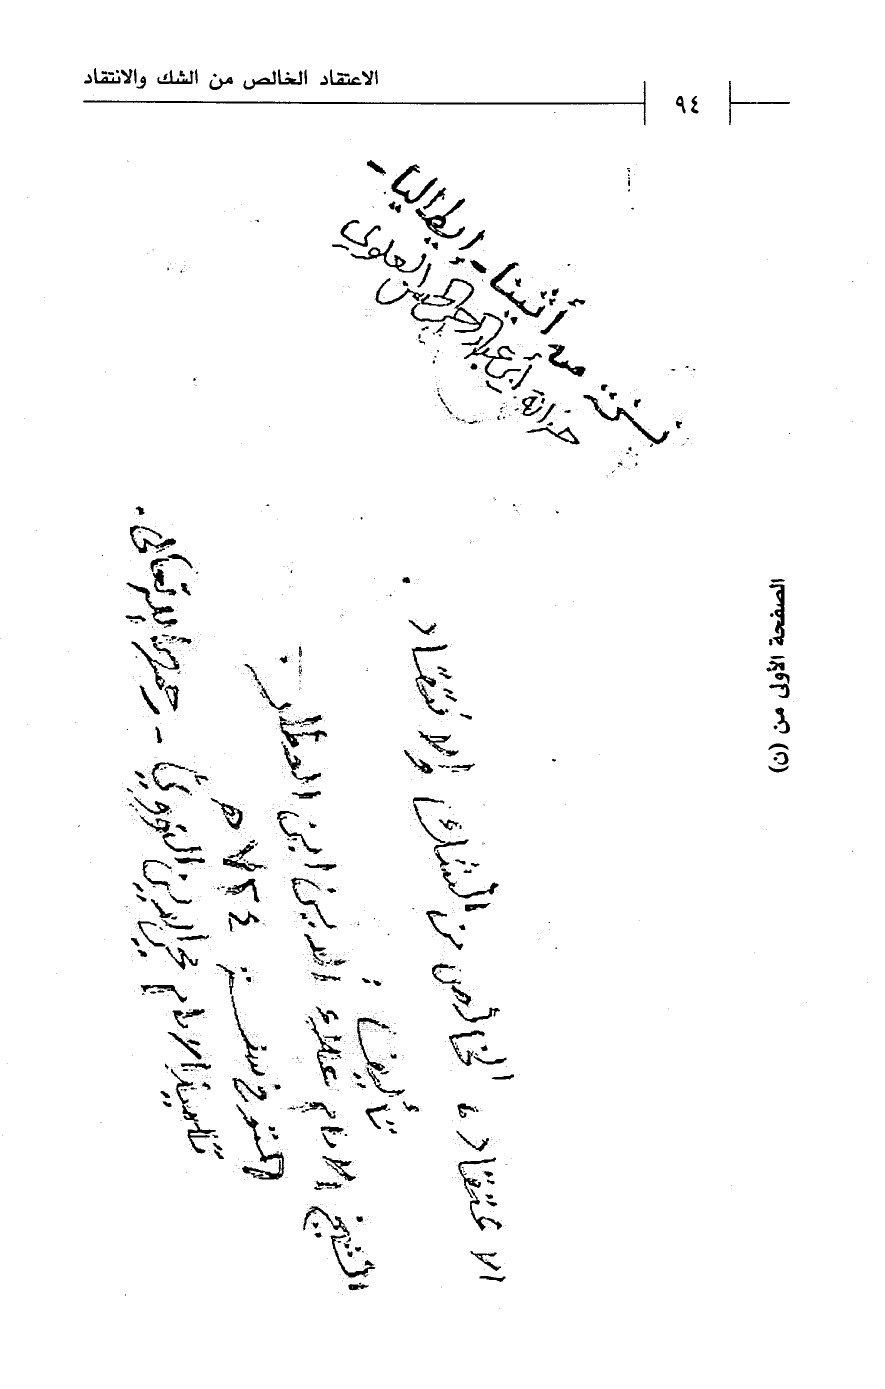 الاعتقاد الخالص من الشك والانتقاد
٩٤
نسخة من أثينا - إيطاليا -
خزانة أبي عبد الرحمن العلوي
الاعتقاد الخالص من الشك والانتقاد .
تأليف :
الشيخ الإمام علاء الدين ابن العطار .
المتوفى سنة ٧٢٤ ه
تلميذ الإمام محي الدين النووي - رحمه الله تعالى .
الصفحة الأولى من (ن)